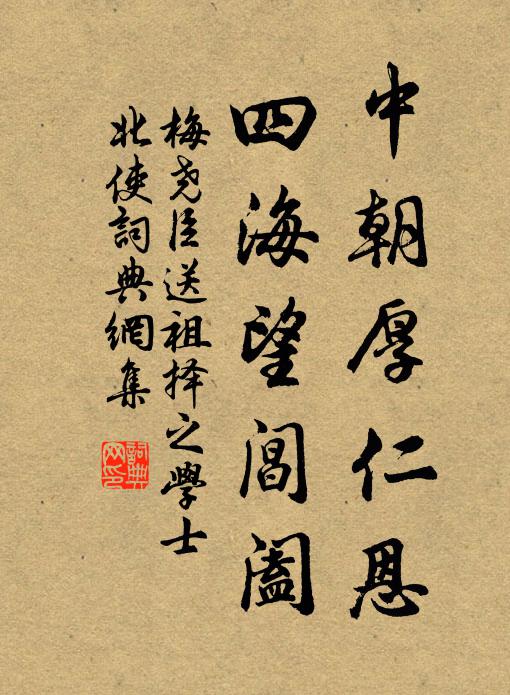 中朝厚仁恩
四海望閶闔
梅尧臣送祖择之學士
北使詞典網集
詞典网印